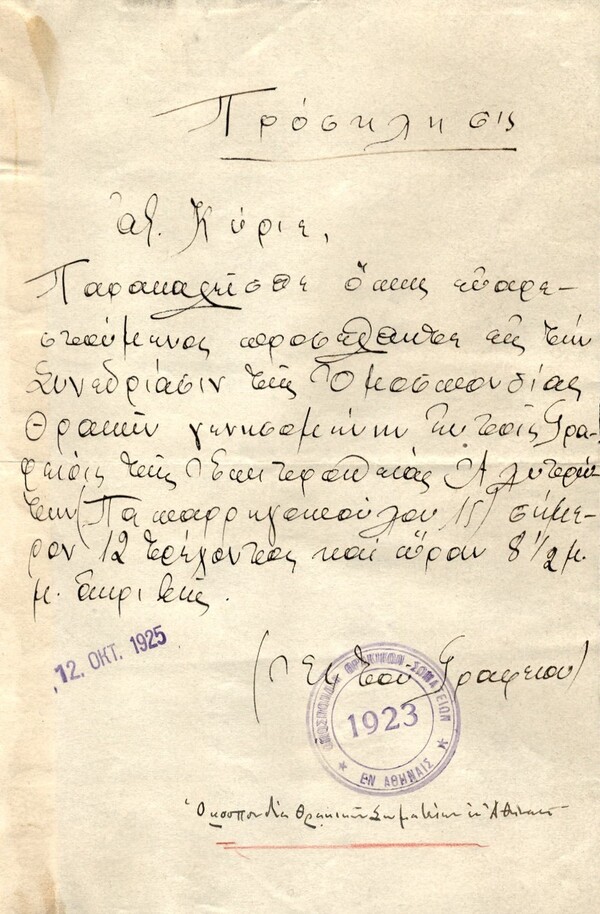 Πρόσκλησις
ἀξ. Κύριε,
Παρακαλεῖσθε ὅπως εὐαρε-
στούμενος προσέλθητε εἰς τὴν
Συνεδρίασιν τῆς Ὁμοσπονδίας
Θρακῶν γενησομένην ἐν τοῖς Γρα-
φείοις τῆς Ἐπιτροπείας Ἀλυτρώ
των (Παπαρρηγοπούλου 15) σήμε-
ρον 12 τρέχοντος καὶ ὥραν 8 1/2 μ.
μ. ἀκριβῶς.
12. ΟΚΤ. 1925
(Ἐκ τοῦ Γραφείου)
ΟΜΟΣΠΟΝΔΙΑ ΘΡΑΚΙΚΩΝ ΣΩΜΑΤΕΙΩΝ
1923
ΕΝ ΑΘΗΝΑΙΣ
Ὁμοσπονδία Θρακικῶν Σωματείων ἐν Ἀθήναις